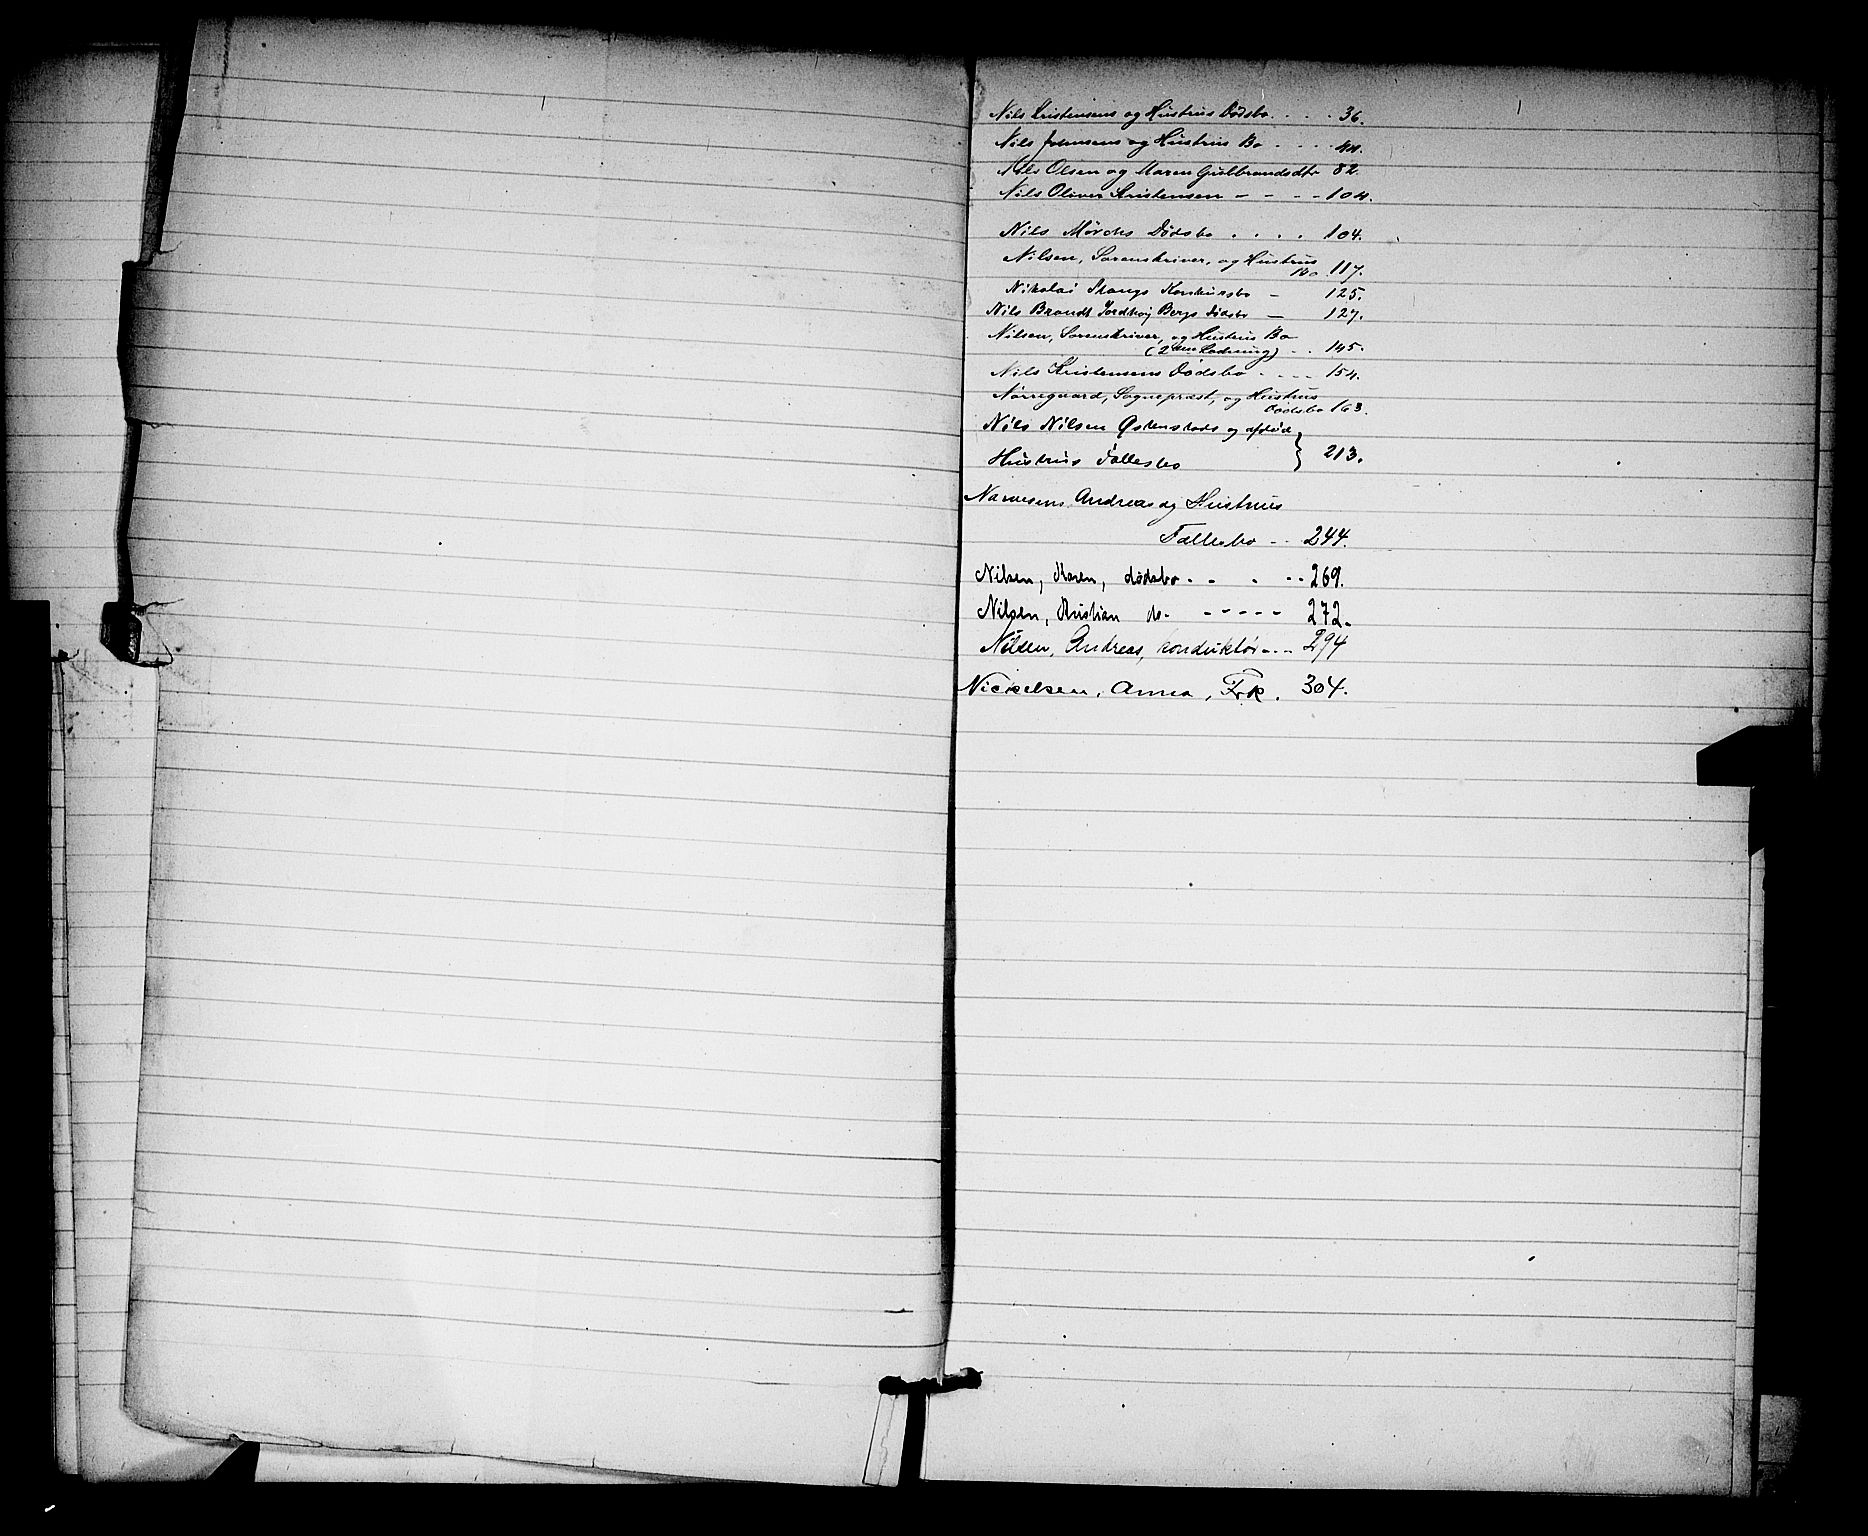 Nils Kristensens og Hustrus Dødsbo. . . . 36.
Nils Johnsens og Hustrus Bo - - - - 44.
Nils Olsen og Maren Gulbrandsdtr 82.
Nils Oliver Kristensen - - - - 104.
Nils Mørchs Dødsbo . . . . 104.
Nilsen, Sorenskriver, og Hustrus
Bo . 117.
Nikolai Stangs Konkursbo - 125.
Nils Brandt Jordhøj Bergs Dødsbo - 127.
Nilsen, Sorenskriver, og Hustrus Bo
(2den Ladning) - . 145.
Nils Kristensens Dødsbo - - - - 154.
Nørregaard, Sogneprest, og Hustrus
Dødsbo 163.
Nils Nilsen Østenstads og afdød
Hustrus Fællesbo } 213.
Narvesens Andreas og Hustrus
Fællesbo - - 244.
Nilsen, Karen, dødsbo - - - - - 269.
Nilsen, Kristian do - - - - - - 272.
Nilsen, Andreas, konduktør - - - 294
Nickelsen, Anna, Frk. 304.